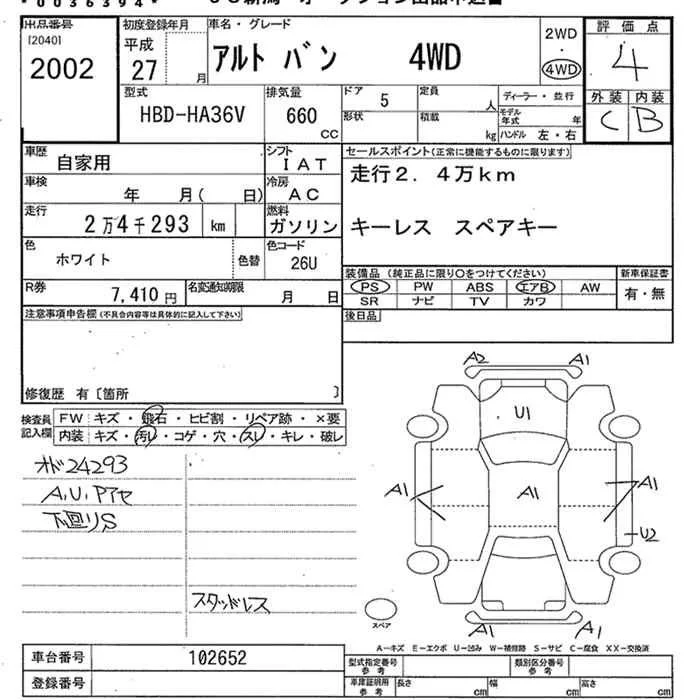 *0036394*
出品番号
[2040]
2002
初度登録年月
平成
27 月
車名・グレード
アルト バン 4WD
2WD
・
4WD
評価点
4
外装 内装
C B
型式
HBD-HA36V
排気量
660
CC
ドア 5
形状
定員 人
積載 kg
ディーラー・並行
モデル年式 年
ハンドル 左・右
車歴
自家用
シフト
IAT
車検
年 月( 日)
冷房
AC
走行
2万4千293 km
燃料
ガソリン
色
ホワイト
色替
色コード
26U
R券
7,410円
名変通知期限
月 日
セールスポイント(正常に機能するものに限ります)
走行2.4万km
キーレス スペアキー
装備品(純正品に限り○をつけてください)
PS PW ABS エアB AW
SR ナビ TV カワ
新車保証書
有・無
後日品
注意事項申告欄(不具合内容等は具体的に記入して下さい)
修復歴 有〔箇所 〕
検査員記入欄
FW キズ・飛石・ヒビ割・リペア跡・×要
内装 キズ・汚レ・コゲ・穴・スレ・キレ・破レ
オド24293
A,U,Pアセ
下回りS
スタッドレス
A2 A1
U1
A1 A1 A1
U2
A1 A1
スペア
A―キズ E―エクボ U―凹み W―補修跡 S―サビ C―腐食 XX―交換済
車台番号 102652
登録番号
型式指定番号 参考
類別区分番号 参考
車庫証明用 参考
長さ cm 幅 cm 高さ cm